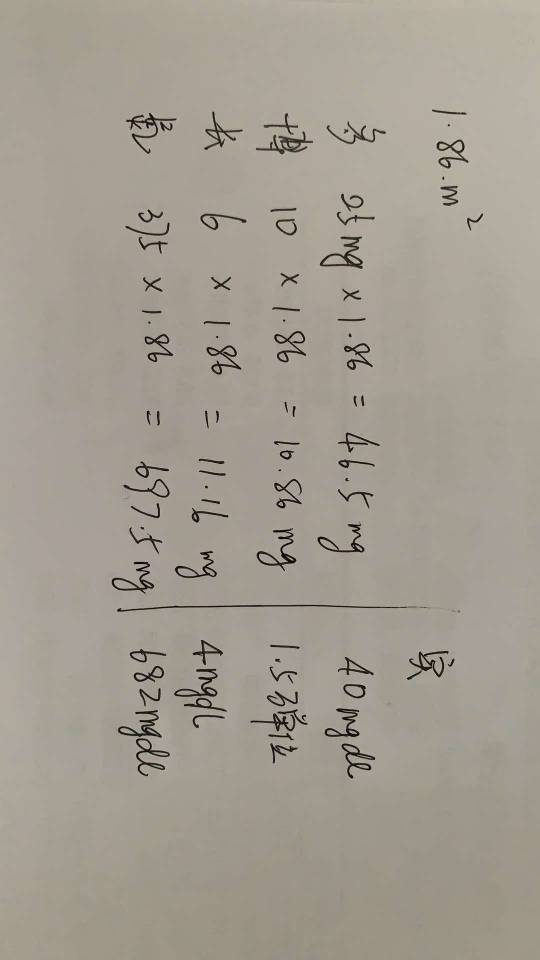 1.86 m²
实
多 25 mg × 1.86 = 46.5 mg 40 mg dl
博 10 × 1.86 = 10.86 mg 1.5万单位
长 6 × 1.86 = 11.16 mg 4 mg dl
氮 375 × 1.86 = 697.5 mg 682 mg dl